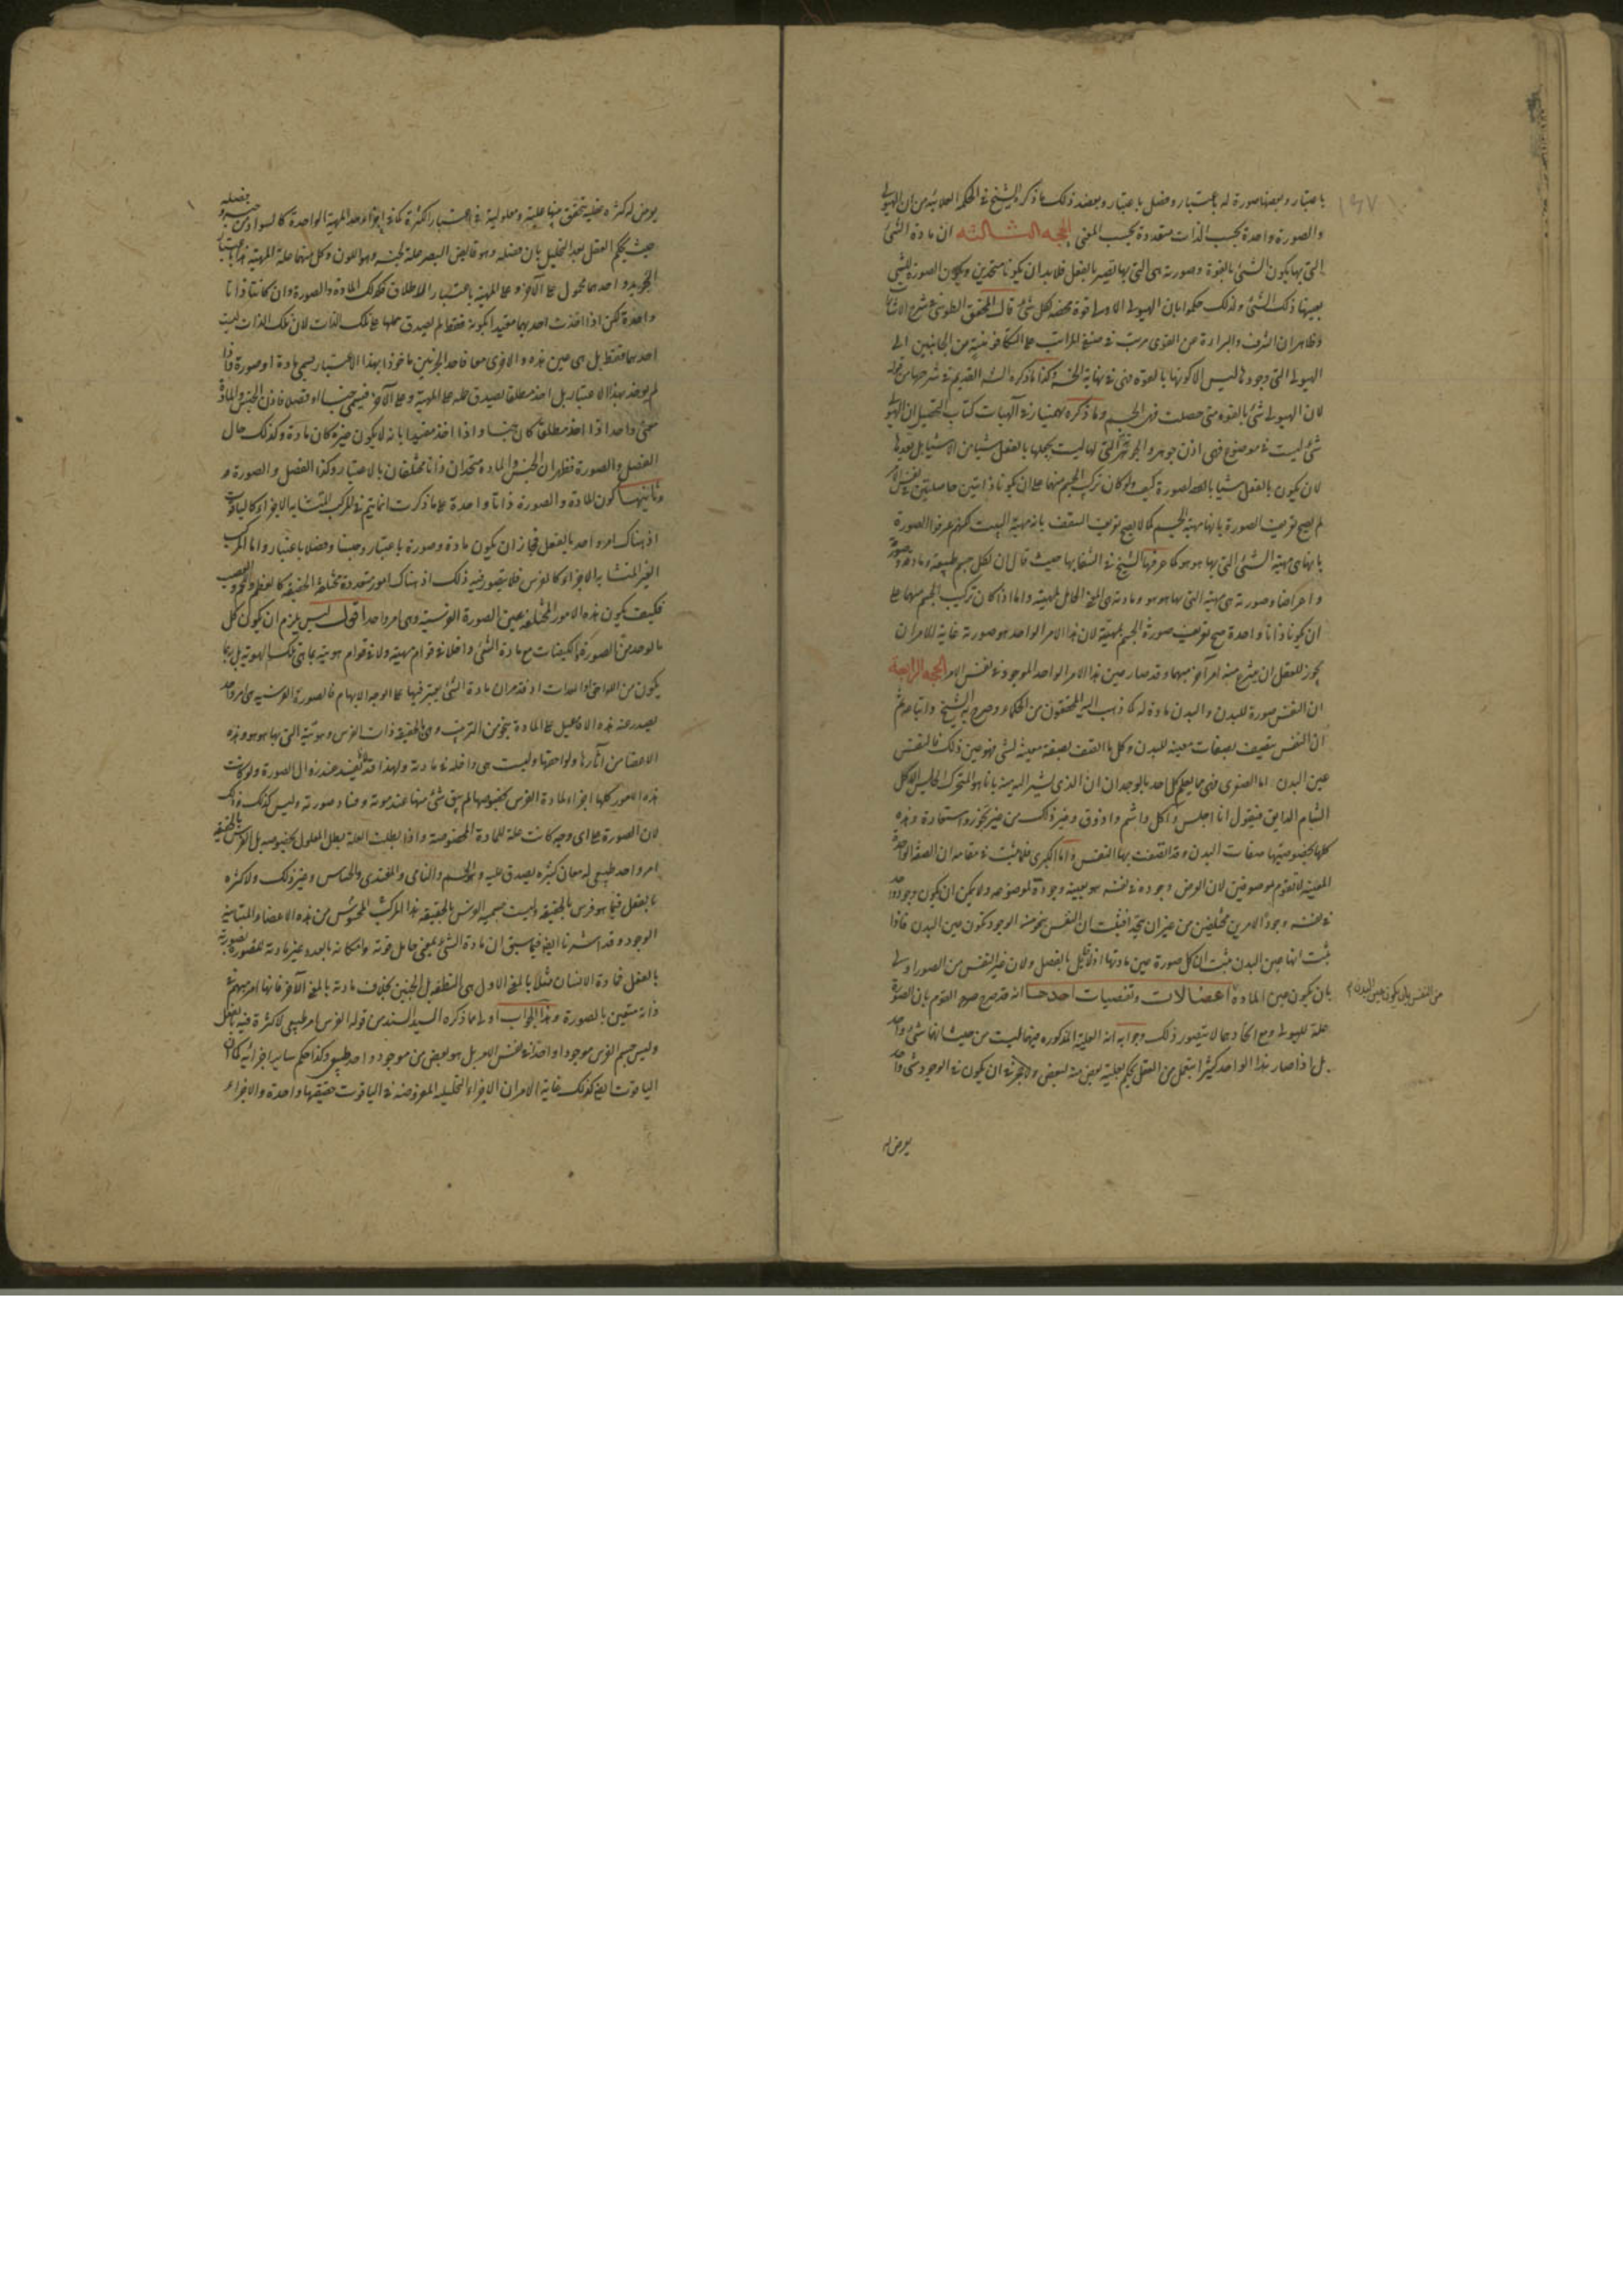 باعتبار وبعضها صورة له باعتبار وفصل باعتبار ويعضد ذلك ما ذكره الشيخ في الحكمة العلائية من ان الهيولى
والصورة واحدة بحسب الذات متعددة بحسب المعنى الحجة الثالثة ان مادة الشئ
التي بها يكون الشئ بالقوة وصورته هى التي بها تصير بالفعل فلابد ان يكونا متحدين ويكون الصورة للشئ
بعينها ذلك الشئ ولذلك حكموا بان الهيولى الاولى قوة محضة لكل شئ قال المحقق الطوسي في شرح الاشارات
وظاهر ان الشرف والبراءة عن القوى مرتب في المراتب على التكافؤ من الجانبين الى
الهيولى التي وجودها ليس الا كونها بالقوة فهى في نهاية الخسة وكذا ما ذكره القديم في شرحها من قوله
لان الهيولى شئ بالقوة متى حصلت فهى الجسم وما ذكره بهمنيار في الهيات كتاب التحصيل ان الهيولى
شئ ليست في موضوع فهى اذن جوهر والجوهرية التي لها ليست تجعلها بالفعل شيئا من الاشياء بل تعدها
لان يكون بالفعل شيئا بالصورة كيف ولو كان تركب الجسم منهما على ان يكونا ذاتين حاصلتين في نفس الامر
لم يصح تعريف الصورة بانها مهية الجسم كما لا يصح تعريف السقف بانه مهية البيت لكنهم عرفوا الصورة
بانها هى مهية الشئ التي بها هو هو كما عرفها الشيخ في الشفا بها حيث قال ان لكل جسم طبيعة ومادة وصورة
واعراضا وصورته هى مهيته التي بها هو هو ومادته هى المعنى الحامل لمهيته واما اذا كان تركيب الجسم منهما على
ان يكونا ذاتا واحدة صح تعريف صورة الجسم بمهيته لان هذا الامر الواحد هو صورته غاية الامر ان
يجوز للعقل ان ينتزع منه امر آخر مبهما وقد صار عين هذا الامر الواحد الموجود في نفس الامر الحجة الرابعة
ان النفس صورة للبدن والبدن مادة له كما ذهب اليه المحققون من الحكماء وصرح به الشيخ واتباعه ثم
ان النفس يتصف بصفات معينة للبدن وكل ما اتصف بصفة معينة لشئ فهو عين ذلك فالنفس
عين البدن اما الصغرى فهى مما يعلم كل احد بالوجدان ان الذي يشير اليه بانا هو المتحرك الجالس الاكل
الشام الذايق فيقول انا اجلس وآكل واشم واذوق وغير ذلك من غير تجوز واستعارة وهذه
كلها بخصوصيتها صفات البدن وقد اتصفت بها النفس واما الكبرى فلما ثبت في مقامه ان الصفة الواحدة
المعينة لا تقوم بموصوفين لان العرض وجوده في نفسه هو بعينه وجوده لموضوعه ولا يمكن ان يكون وجود واحد
في نفسه وجودا لامرين مختلفين من غير ان يتحدا فثبت ان النفس بنحو من الوجود تكون عين البدن فاذا
ثبت انها عين البدن ثبت ان كل صورة عين مادتها اذ لا قائل بالفصل ولان غير النفس من الصور اولى
من النفس بان يكون عين البدن
بان يكون عين المادة اعضالات وتفصيات احدها انه قد صرح القوم بان الصورة
علة للهيولى ومع اتحادهما لا يتصور ذلك وجوابه ان العلية المذكورة بينهما ليست من حيث انهما شئ واحد
بل اذا صار هذا الواحد كثيرا بتحليل من العقل يحكم بعلية بعض منه لبعض ولا يجوز ان يكون في الوجود شئ واحد
يعرض له
يعرض له كثرة عقلية يتحقق بينها علية ومعلولية في اعتبار الكثرة كما في اجزاء حد المهية الواحدة كالسواد من جنسه وفصله
حيث يحكم العقل بعد التحليل بان فصله وهو قابض البصر علة لجنسه وهو اللون وكل منهما علة المهية هذا باعتبار
التجريد واحدهما محمول على الآخر وعلى المهية باعتبار الاطلاق فكذلك المادة والصورة وان كانتا ذاتا
واحدة لكن اذا اخذت احديهما مقيدا بكونه فقط لم يصدق حملها على تلك الذات لان تلك الذات ليست
احدهما فقط بل هى عين هذه والاخرى معا فاحد الجزئين ماخوذا بهذا الاعتبار يسمى مادة او صورة فاذا
لم يوخذ بهذا الاعتبار بل اخذ مطلقا يصدق حمله على المهية وعلى الآخر فيسمى جنسا او فصلا فاذن الجنس والمادة
معنى واحد اذا اخذ مطلقا كان جنسا واذا اخذ مقيدا بانه لا يكون غيره كان مادة وكذلك حال
الفصل والصورة فظهر ان الجنس والمادة متحدان ذاتا مختلفان بالاعتبار وكذا الفصل والصورة و
وثانيها كون المادة والصورة ذاتا واحدة على ما ذكرت انما يتم في المركب المتشابه الاجزاء كالياقوت
اذ هناك امر واحد بالفعل فجاز ان يكون مادة وصورة باعتبار وجنسا وفصلا باعتبار واما المركب
الغير المتشابه الاجزاء كالفرس فلا يتصور فيه ذلك اذ هناك امور متعددة مختلفة الحقيقة كالعظم واللحم والعصب
فكيف يكون هذه الامور المختلفة عين الصورة الفرسية وهى امر واحد اقول ليس يلزم ان يكون كل
ما يوجد من الصور والكيفيات مع مادة الشئ داخلا في قوام مهيته ولا في قوام هويته بما هى تلك الهوية بل ربما
يكون من اللواحق والمعدات اذ قد مر ان مادة الشئ يعتبر فيها على الوجه الابهام فالصورة الفرسية هى امر واحد
يصدر عنه هذه الافاعيل على المادة بنحو من الترتيب وهى بالحقيقة ذات الفرس وهويته التي بها هو هو وهذه
الاعضا من آثارها ولواحقها وليست هى داخلة في مادته ولهذا قد عند زوال الصورة ولو كانت
هذه الامور كلها اجزاء لمادة الفرس بخصوصها لم يبق شئ منها عند موته وفساد صورته وليس كذلك وذلك
لان الصورة على اى وجه كانت علة للمادة المخصوصة واذا بطلت العلة بطل المعلول بخصوصه بل الفرس بالحقيقة
امر واحد طبيعي له معان كثيرة يصدق عليه وهو الجسم والنامى والمغتذى والحساس وغير ذلك ولا كثرة
بالفعل فيما هو فرس بالحقيقة وليست جسمية الفرس بالحقيقة هذا المركب المحسوس من هذه الاعضاء المتباينة
الوجود وقد اشرنا ايضا فيما سبق ان مادة الشئ بمعنى حامل قوته وامكانه بالعدد غير مادته بصورته
بالفعل فمادة الانسان مثلا بالمعنى الاول هى النطفة بل الجنين بخلاف مادته بالمعنى الآخر فانها امر مبهم في
ذاته متعين بالصورة وهذا الجواب اولى مما ذكره السيد السند من قوله الفرس امر طبيعي لا كثرة فيه بالفعل
وليس جسم الفرس موجودا واحدا في نفس الامر بل هو بعض من موجود واحد طبيعي وكذا حكم ساير اجزائه كما ان
الياقوت ايضا كذلك غاية الامر ان الاجزاء التحليلية المعروضة في الياقوت حقيقتها واحدة والاجزاء